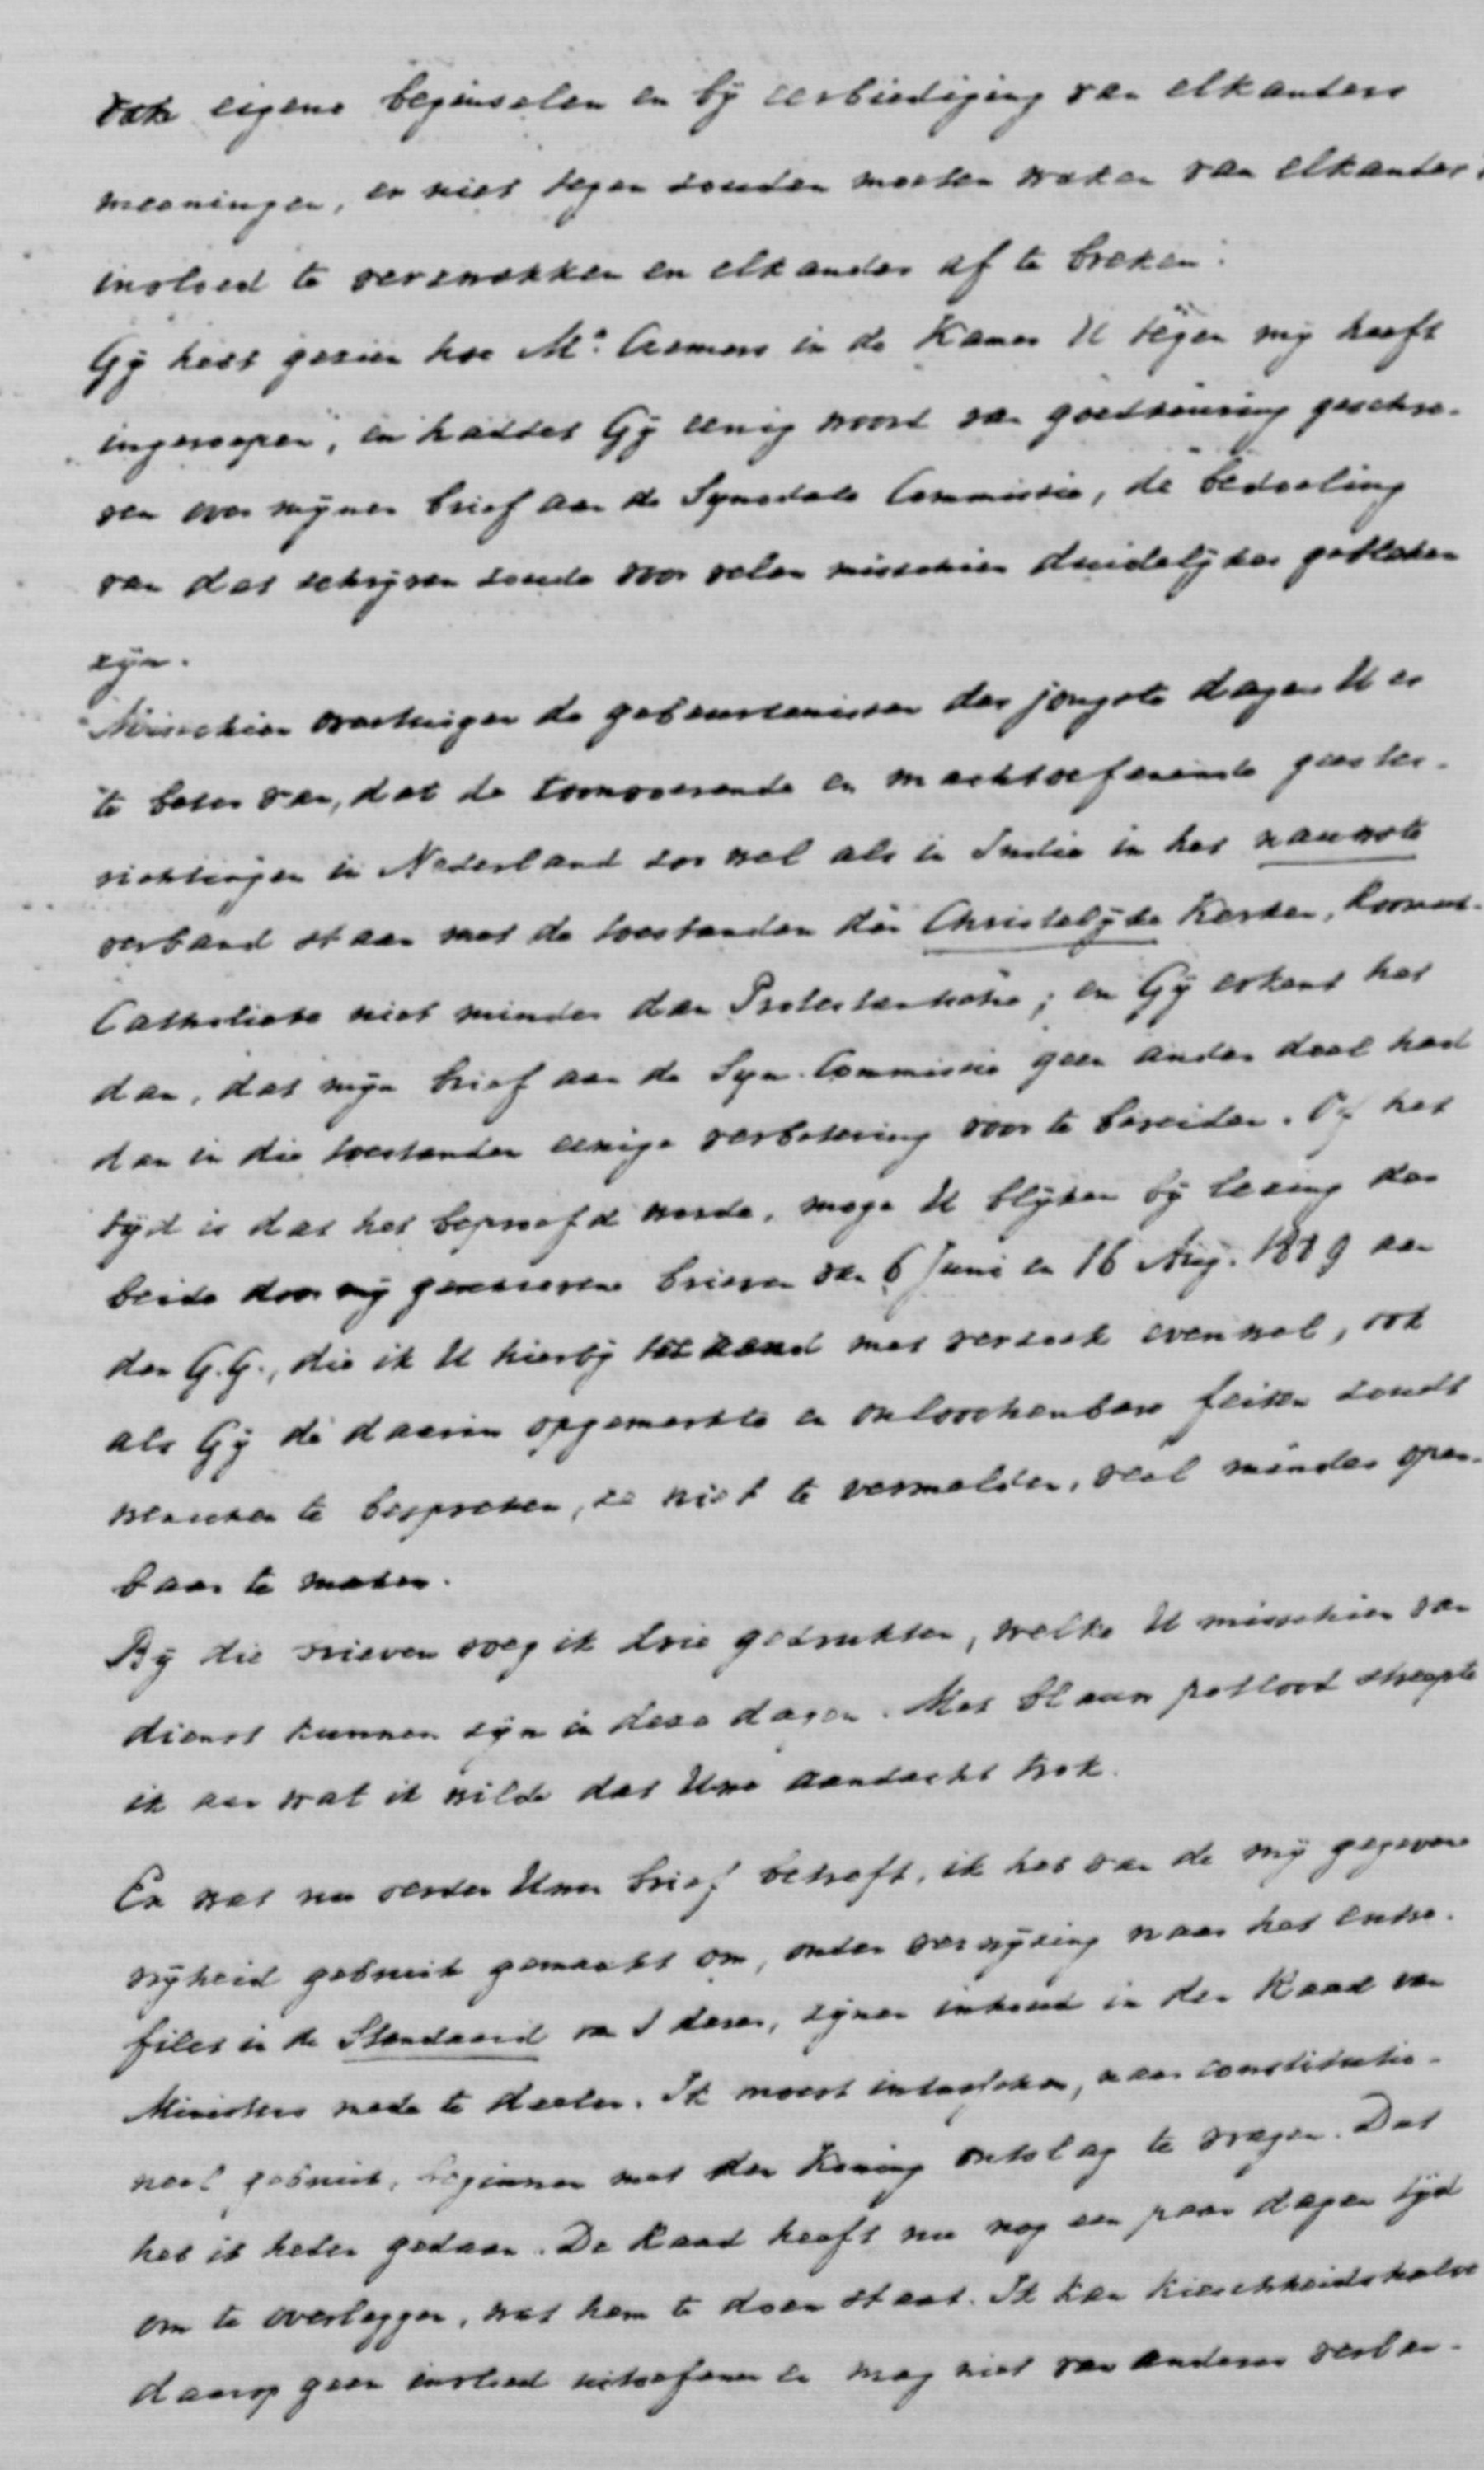 vak eigene beginselen en bij eerbiediging van elkanders
meeningen, er niet tegen zouden moeten waken van elkanders
invloed te verzwakken en elkander af te breken.
Gij hebt gezien hoe Mr. Cremers in de Kamer U tegen mij heeft
ingeroepen, en haddet Gij eenig woord van goedkeuring geschre-
ven over mijnen brief aan de Synodale Commissie, de bedoeling
van dat schrijven zoude voor velen misschien duidelijker gebleken
zijn.
Misschien overtuigen de gebeurtenissen der jongste dagen U er
te beter van, dat de toongevende en machtoefenende geestes-
richtingen in Nederland zoo wel als in Indië in het nauwste
verband staan met de toestanden der Christelijke Kerken, Roomsch-
Catholieke niet minder dan Protestantsche; en Gij erkent het
dan, dat mijn brief aan de Syn. Commissie geen ander doel had
dan in die toestanden eenige verbetering voor te bereiden. Of het
tijd is dat het beproefd worde, moge U blijken bij lezing der
beide door mij geschrevene brieven van 6 Juni en 16 Aug. 1889 aan
den G.G., die ik U hierbij toezend met verzoek evenwel, ook
als Gij de daarin opgemerkte en onloochenbare feiten zoudt
wenschen te bespreken, ze niet te vermelden, veel minder open-
baar te maken.
Bij die brieven voeg ik drie gedrukten, welke U misschien van
dienst kunnen zijn in deze dagen. Met blauw potlood streepte
ik aan wat ik wilde dat Uwe aandacht trok.
En wat nu verder Uwen brief betreft, ik heb van de mij gegevene
vrijheid gebruik gemaakt om, onder verwijzing naar het entre-
filet in de Standaard van dezer, zijnen inhoud in den Raad van
Ministers mede te deelen. Ik moest intusschen, naar constitutio-
neel gebruik, beginnen met den Koning ontslag te vragen. Dat
heb ik heden gedaan. De Raad heeft nu nog een paar dagen tijd
om te overleggen, wat hem te doen staat. Ik kan kieschheidshalve
daarop geen invloed uitoefenen en mag niet van anderen verlan-